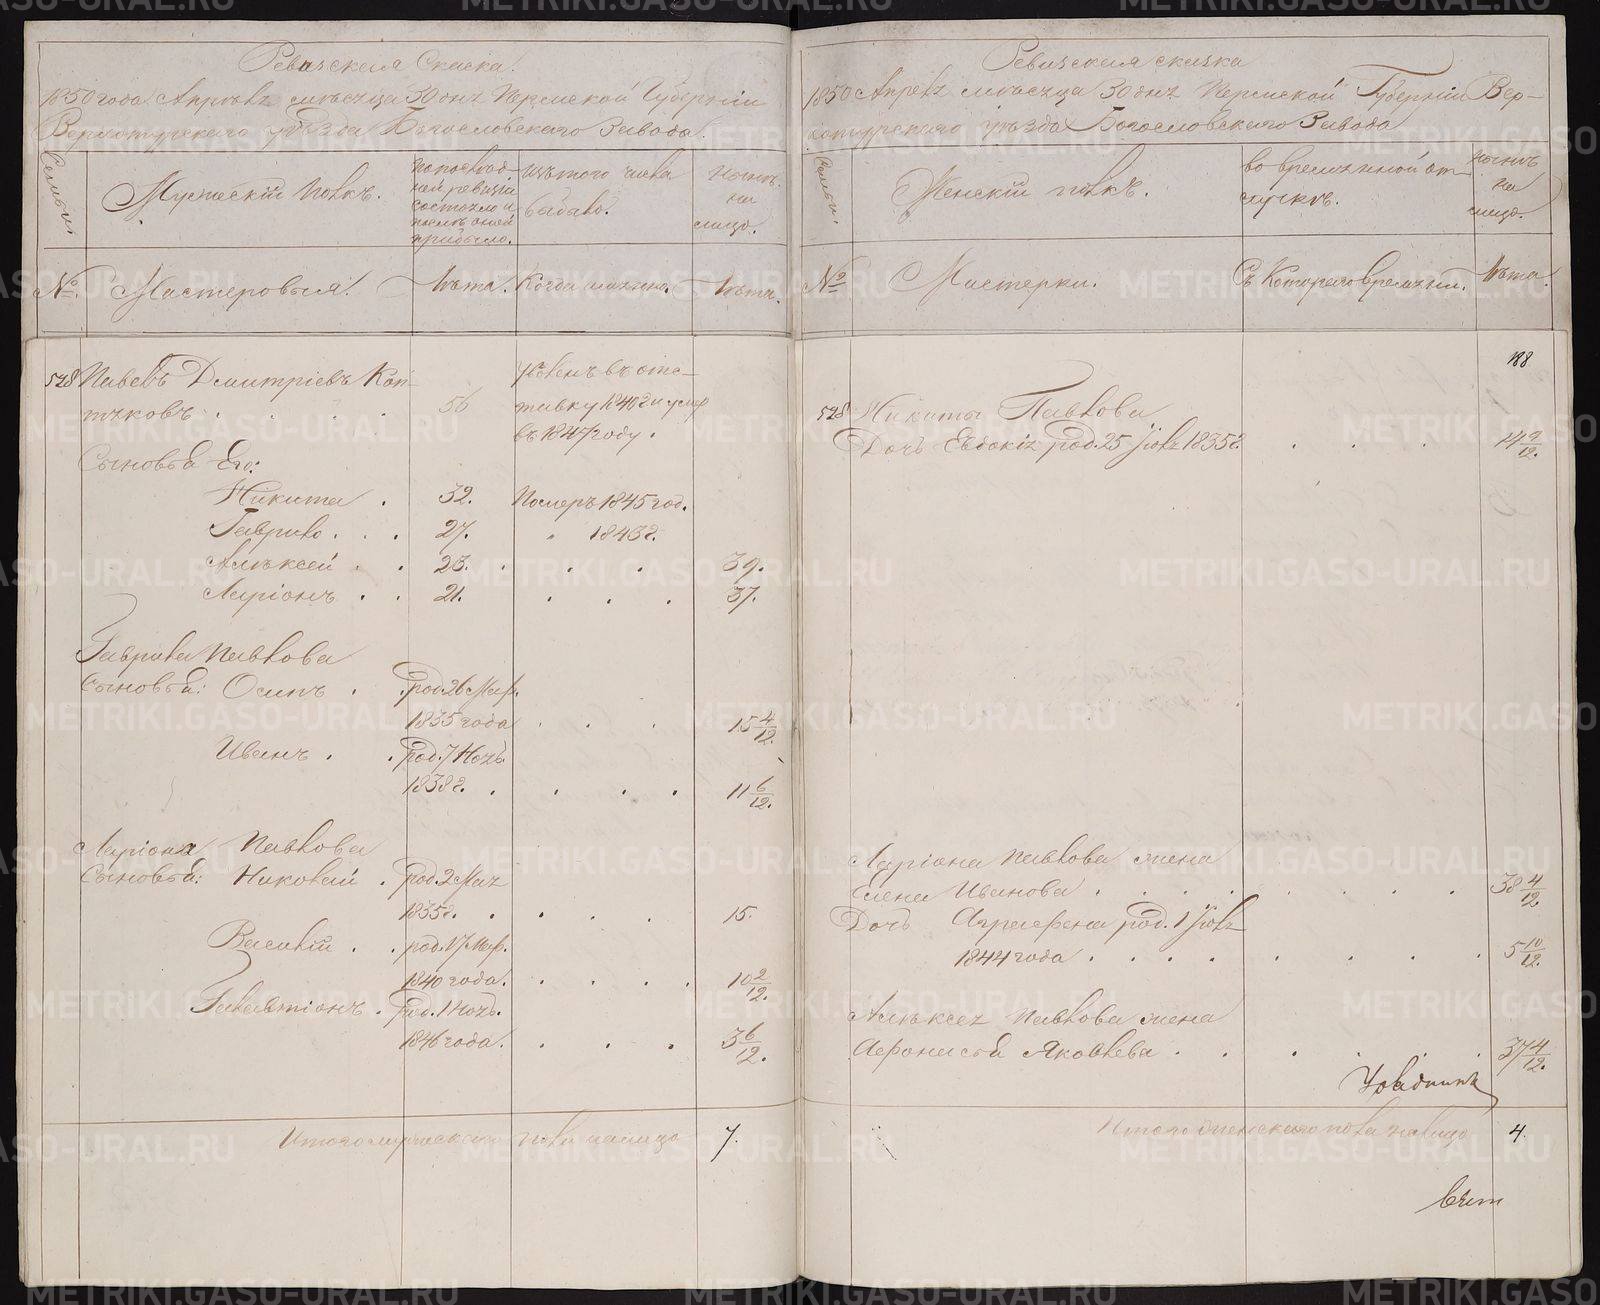 Ревизская Сказка.
1850 года Апреля месяца 30 дня Пермской Губернии
Верхотурского уезда Богословского Завода.
Семьи.
Мужеский полъ.
По послед-
ней ревизіи
состояло и
после оной
прибыло.
Изъ того числа
выбыло.
Ныне
на
лицо.
№
Мастеровыя.
Лета.
Когда именно.
Лета.
528 Павелъ Дмитріевъ Коп-
тяковъ . . . . 56
Уволенъ въ отс-
тавку 1840 г. и умер
въ 1847 году.
Сыновья Его:
Никита . 32. Померъ 1845 год.
Гаврило . . . 27. " 1843 г.
Алексей . . 23. . . . 39.
Ларіонъ . . 21. . . . 37.
Гаврила Павлова
Сыновья: Осипъ . род. 26 Мар.
1835 года . . . 15 4/12.
Иванъ . . род. 7 Нояб.
1838 г. . . . . 11 6/12.
Ларіона Павлова
Сыновья: Николай . род. 2 Мая
1835 г. . . . . 15.
Василій . . род. 17 Мар.
1840 года. . . . . 10 2/12.
Галактіонъ . род. 1 Нояб.
1846 года. . . . 3 6/12.
Итого мужескаго пола на лицо 7.
Ревизская сказка
1850 Апреля месяца 30 дня Пермской Губерніи Вер-
хотурского уезда Богословского Завода
Семьи.
Женскій полъ.
во временной от-
лучке.
Ныне
на
лицо.
№
Мастерки.
Съ Которого времени.
Лета.
188
528 Никиты Павлова
Дочь Евдокія род. 25 Іюля 1835 г. . . . 14 9/12.
Ларіона Павлова жена
Елена Иванова . . . . . . . 38 4/12.
Дочь Аграфена род. 1 Іюля
1844 года . . . . . . . 5 10/12.
Алексея Павлова жена
Афонасья Яковлева . . . . . 37 4/12.
Итого женскаго пола на лицо 4.
METRIKI.GASO-URAL.RU